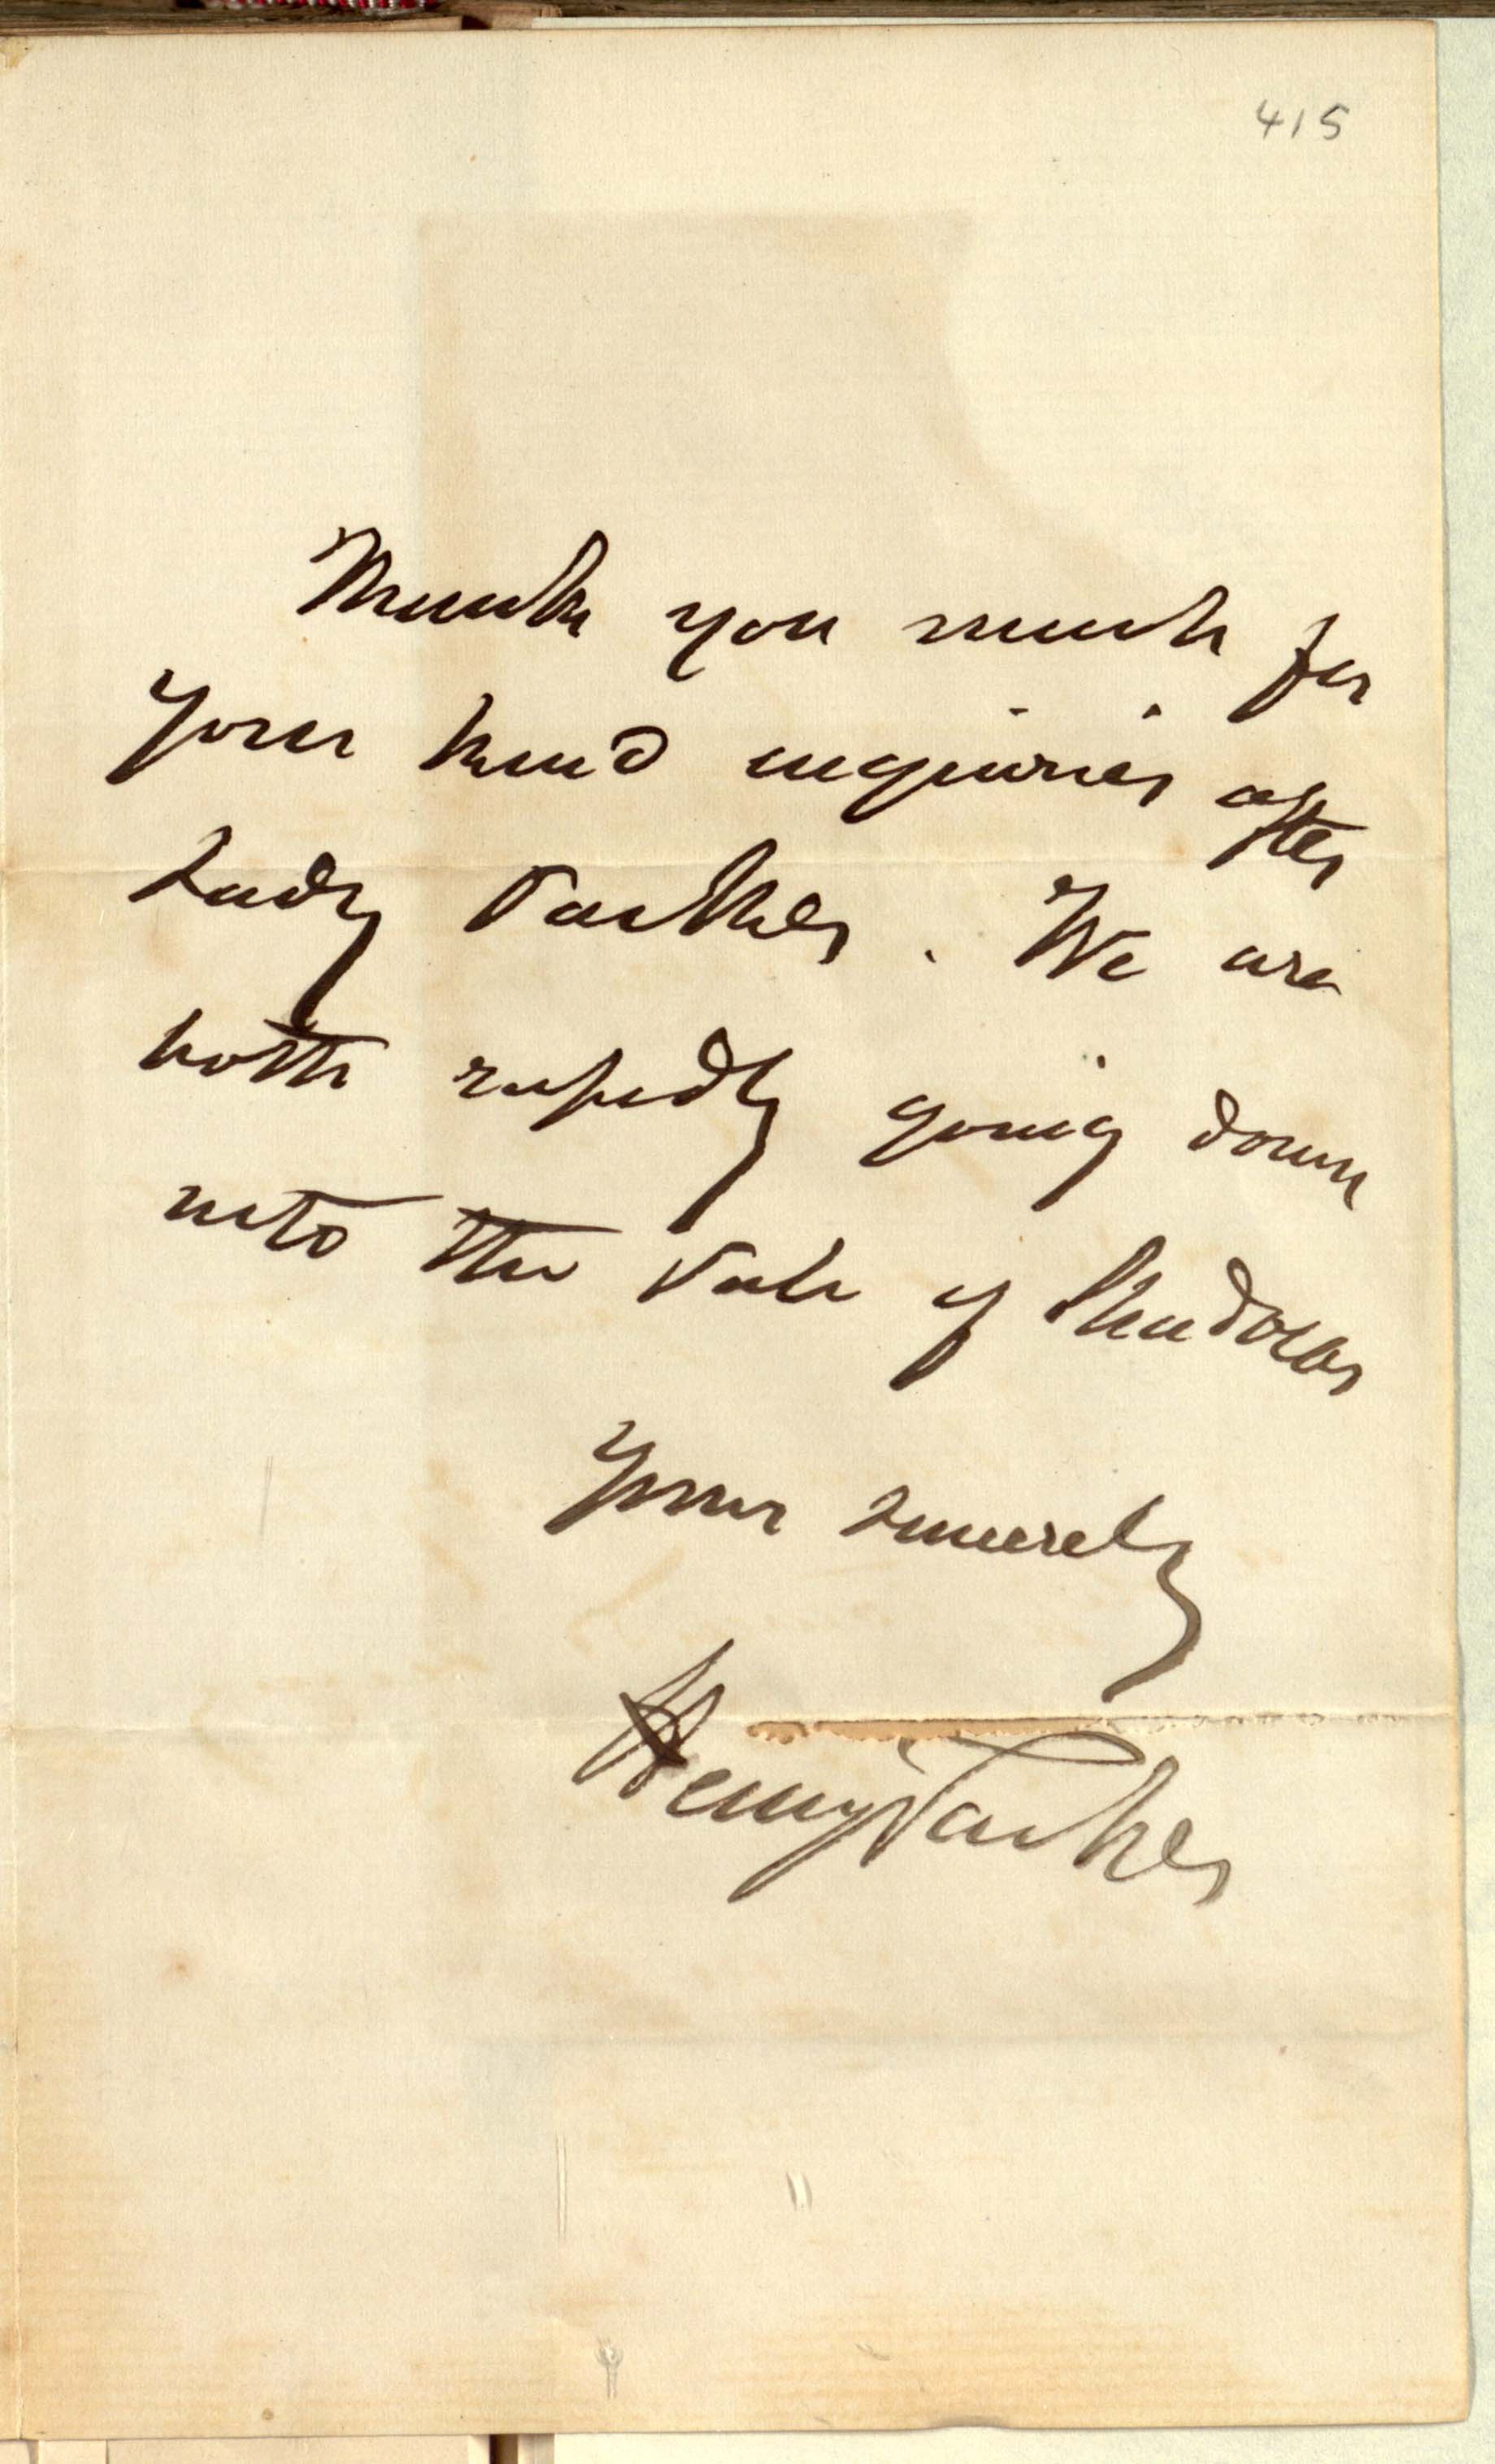 415
Thank you much for
your kind inquiries after
Lady Parkes. We are
both rapidly going down
into the Vale of Shadows
Yours sincerely
Henry Parkes